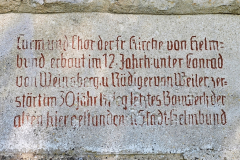 Turm und Chor der fr. Kirche von Helm-
bund erbaut im 12. Jahrh. unter Conrad
von Weinsberg u. Rüdiger von Weiler, zer-
stört im 30 jähr. K. leg letztes Bauwerk der
alten hier gestandenen Stadt Helmbund